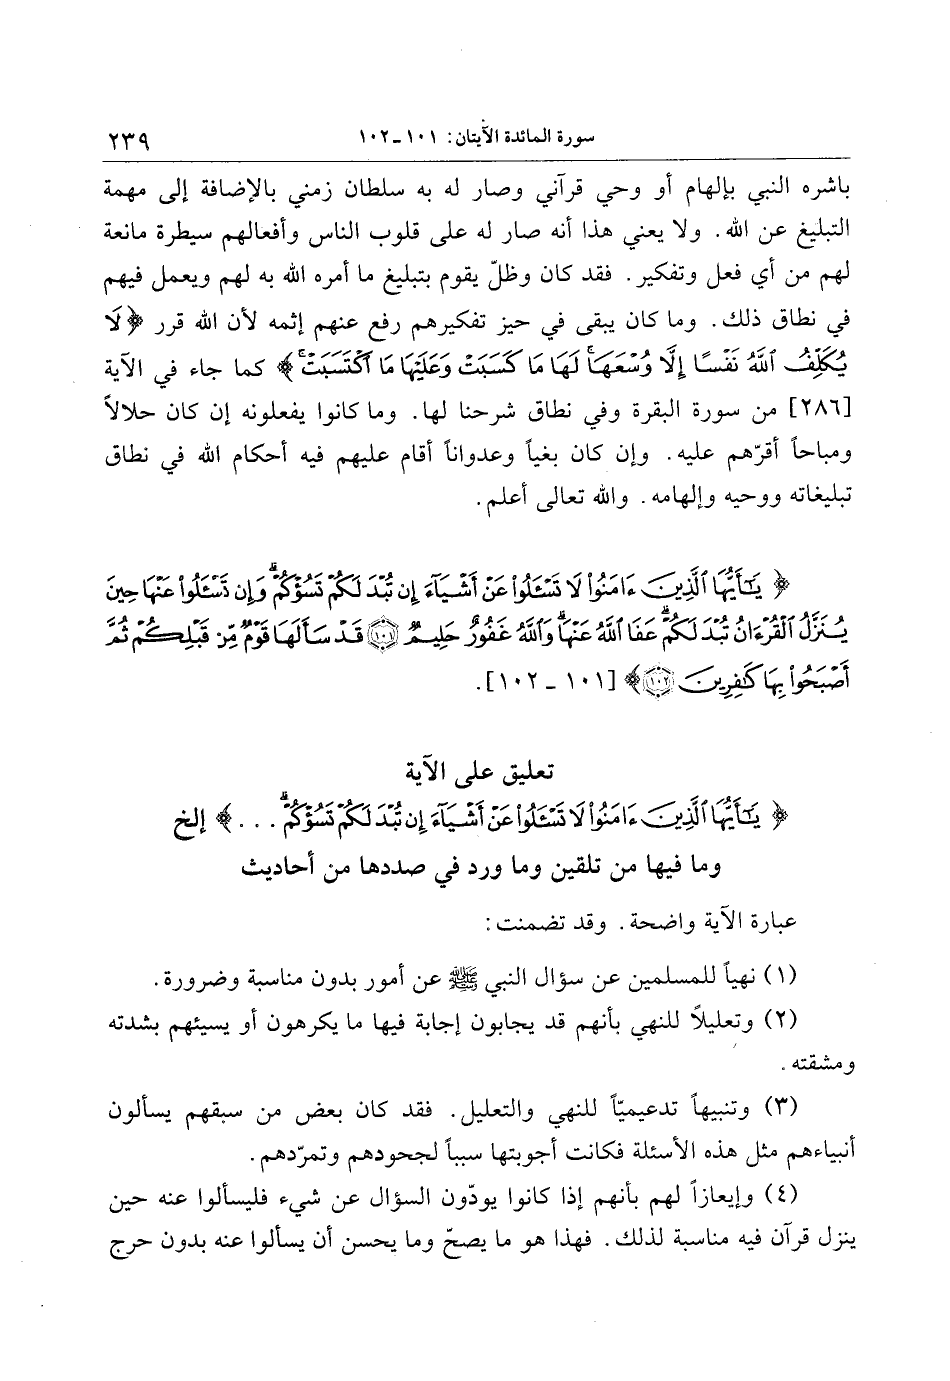 سورة المائدة الآيتان: ١٠١ ـ ١٠٢ ٢٣٩
باشره النبي بإلهام أو وحي قرآني وصار له به سلطان زمني بالإضافة إلى مهمة
التبليغ عن الله. ولا يعني هذا أنه صار له على قلوب الناس وأفعالهم سيطرة مانعة
لهم من أي فعل وتفكير. فقد كان وظلّ يقوم بتبليغ ما أمره الله به لهم ويعمل فيهم
في نطاق ذلك. وما كان يبقى في حيز تفكيرهم رفع عنهم إثمه لأن الله قرر ﴿لَا
يُكَلِّفُ ٱللَّهُ نَفْسًا إِلَّا وُسْعَهَاۚ لَهَا مَا كَسَبَتْ وَعَلَيْهَا مَا ٱكْتَسَبَتْۗ﴾ كما جاء في الآية
[٢٨٦] من سورة البقرة وفي نطاق شرحنا لها. وما كانوا يفعلونه إن كان حلالاً
ومباحاً أقرّهم عليه. وإن كان بغياً وعدواناً أقام عليهم فيه أحكام الله في نطاق
تبليغاته ووحيه وإلهامه. والله تعالى أعلم.
﴿ يَٰٓأَيُّهَا ٱلَّذِينَ ءَامَنُوا۟ لَا تَسْـَٔلُوا۟ عَنْ أَشْيَآءَ إِن تُبْدَ لَكُمْ تَسُؤْكُمْ وَإِن تَسْـَٔلُوا۟ عَنْهَا حِينَ
يُنَزَّلُ ٱلْقُرْءَانُ تُبْدَ لَكُمْ عَفَا ٱللَّهُ عَنْهَاۗ وَٱللَّهُ غَفُورٌ حَلِيمٌ ﴿١٠١﴾ قَدْ سَأَلَهَا قَوْمٌ مِّن قَبْلِكُمْ ثُمَّ
أَصْبَحُوا۟ بِهَا كَٰفِرِينَ ﴿١٠٢﴾﴾ [١٠١ ـ ١٠٢].
تعليق على الآية
﴿ يَٰٓأَيُّهَا ٱلَّذِينَ ءَامَنُوا۟ لَا تَسْـَٔلُوا۟ عَنْ أَشْيَآءَ إِن تُبْدَ لَكُمْ تَسُؤْكُمْ ...﴾ إلخ
وما فيها من تلقين وما ورد في صددها من أحاديث
عبارة الآية واضحة. وقد تضمنت:
(١) نهياً للمسلمين عن سؤال النبي ﷺ عن أمور بدون مناسبة وضرورة.
(٢) وتعليلاً للنهي بأنهم قد يجابون إجابة فيها ما يكرهون أو يسيئهم بشدته
ومشقته.
(٣) وتنبيهاً تدعيميّاً للنهي والتعليل. فقد كان بعض من سبقهم يسألون
أنبياءهم مثل هذه الأسئلة فكانت أجوبتها سبباً لجحودهم وتمرّدهم.
(٤) وإيعازاً لهم بأنهم إذا كانوا يودّون السؤال عن شيء فليسألوا عنه حين
ينزل قرآن فيه مناسبة لذلك. فهذا هو ما يصحّ وما يحسن أن يسألوا عنه بدون حرج